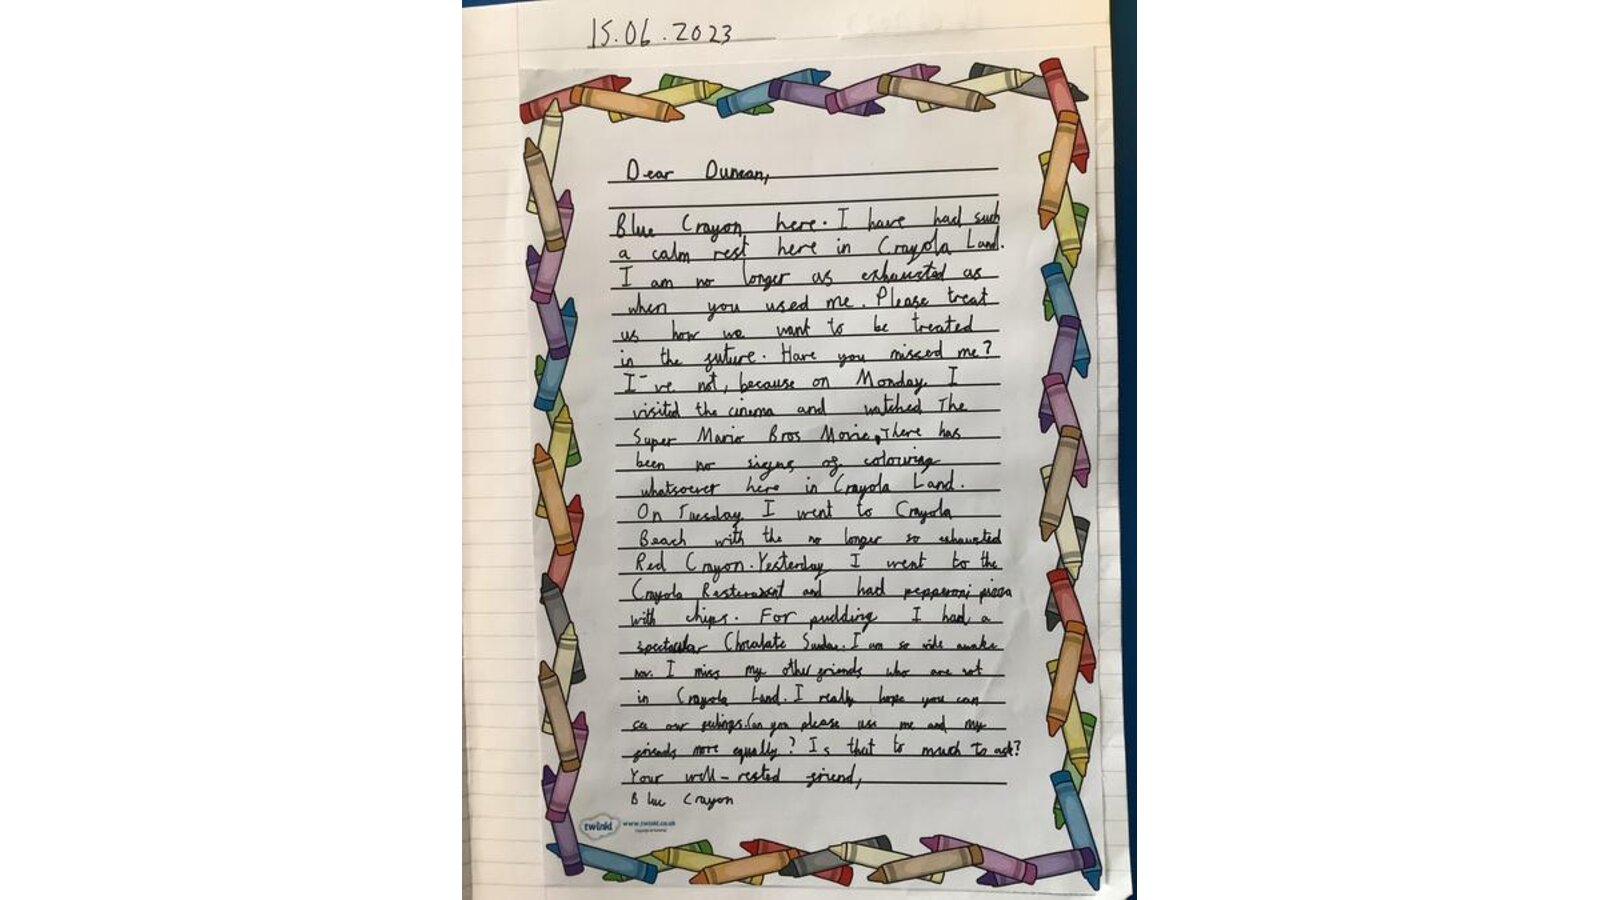 15.06.2023
Dear Duncan,
Blue Crayon here. I have had such
a calm rest here in Crayola Land.
I am no longer as exhausted as
when you used me. Please treat
us how we want to be treated
in the future. Have you missed me?
I've not, because on Monday I
visited the cinema and watched The
Super Mario Bros Movie. There has
been no signs of colouring
whatsoever here in Crayola Land.
On Tuesday I went to Crayola
Beach with the no longer so exhausted
Red Crayon. Yesterday I went to the
Crayola and had pepperoni pizza
with chips. For pudding I had a
spectacular Chocalate I am so wide awake
now. I miss my other friends who are not
in Crayola Land. I really hope you can
see our feelings. Can you please use me and my
friends more equally? Is that to much to ask?
Your well-rested friend,
Blue Crayon
twinkl www.twinkl.co.uk